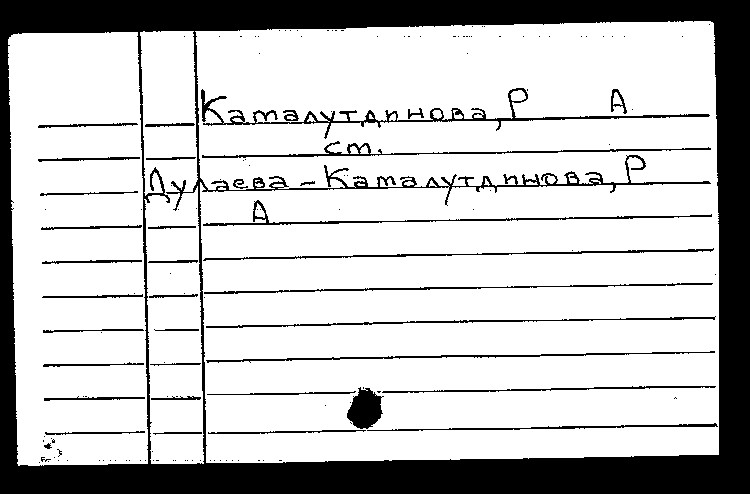 Камалутдинова, Р А
ст.
Дулаева-Камалутдинова, Р
А